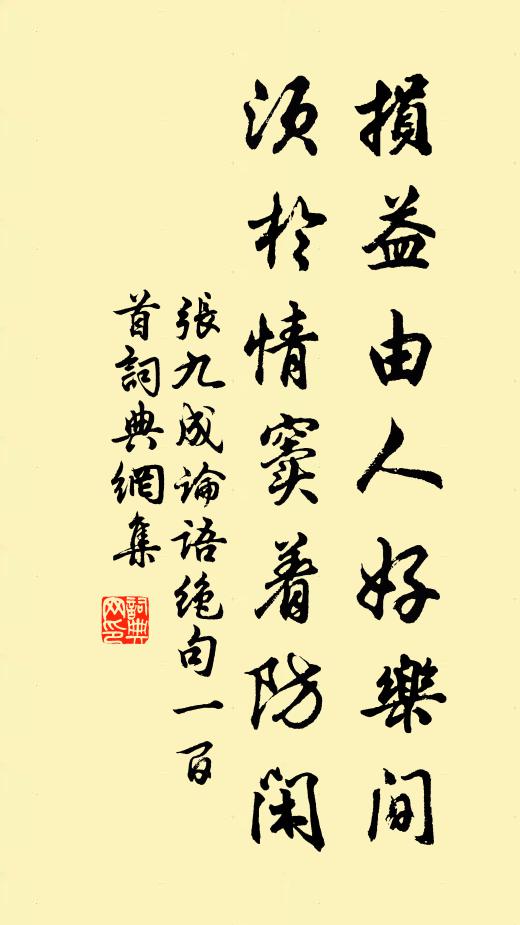 損益由人好樂间
須於情竇着防闲
張九成論語絶句一百
首詞典網集
詞典网印